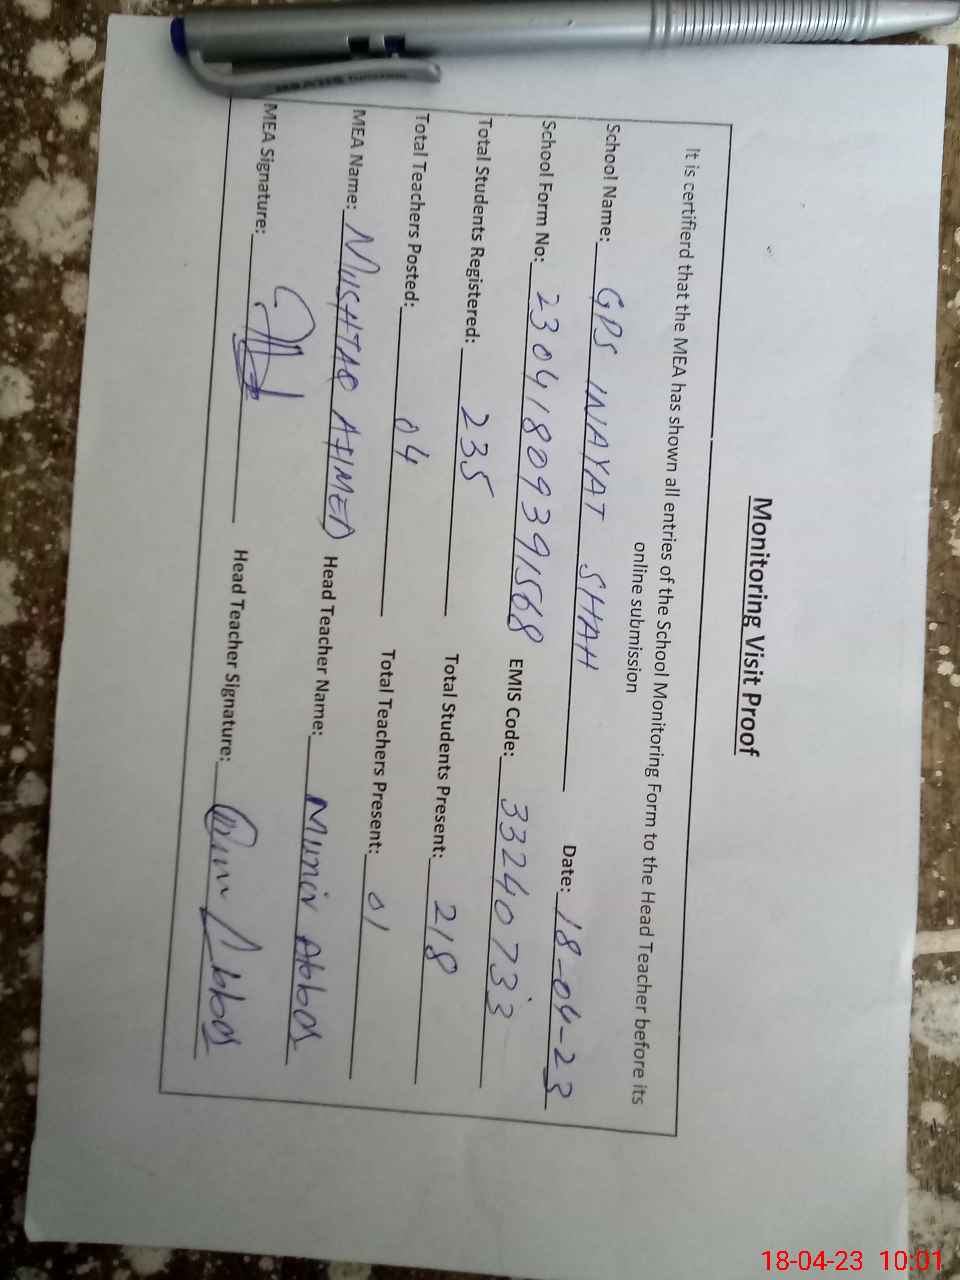 Monitoring Visit Proof
It is certifierd that the MEA has shown all entries of the School Monitoring Form to the Head Teacher before its
online submission
School Name: GPS INAYAT SHAH Date: 18-04-23
School Form No: 23041809391568 EMIS Code: 33240733
Total Students Registered: 235 Total Students Present: 218
Total Teachers Posted: 04 Total Teachers Present: 01
MEA Name: MUSHTAQ AHMED Head Teacher Name: Munir Abbas
MEA Signature: Head Teacher Signature: Munir Abbas
18-04-23 10:01